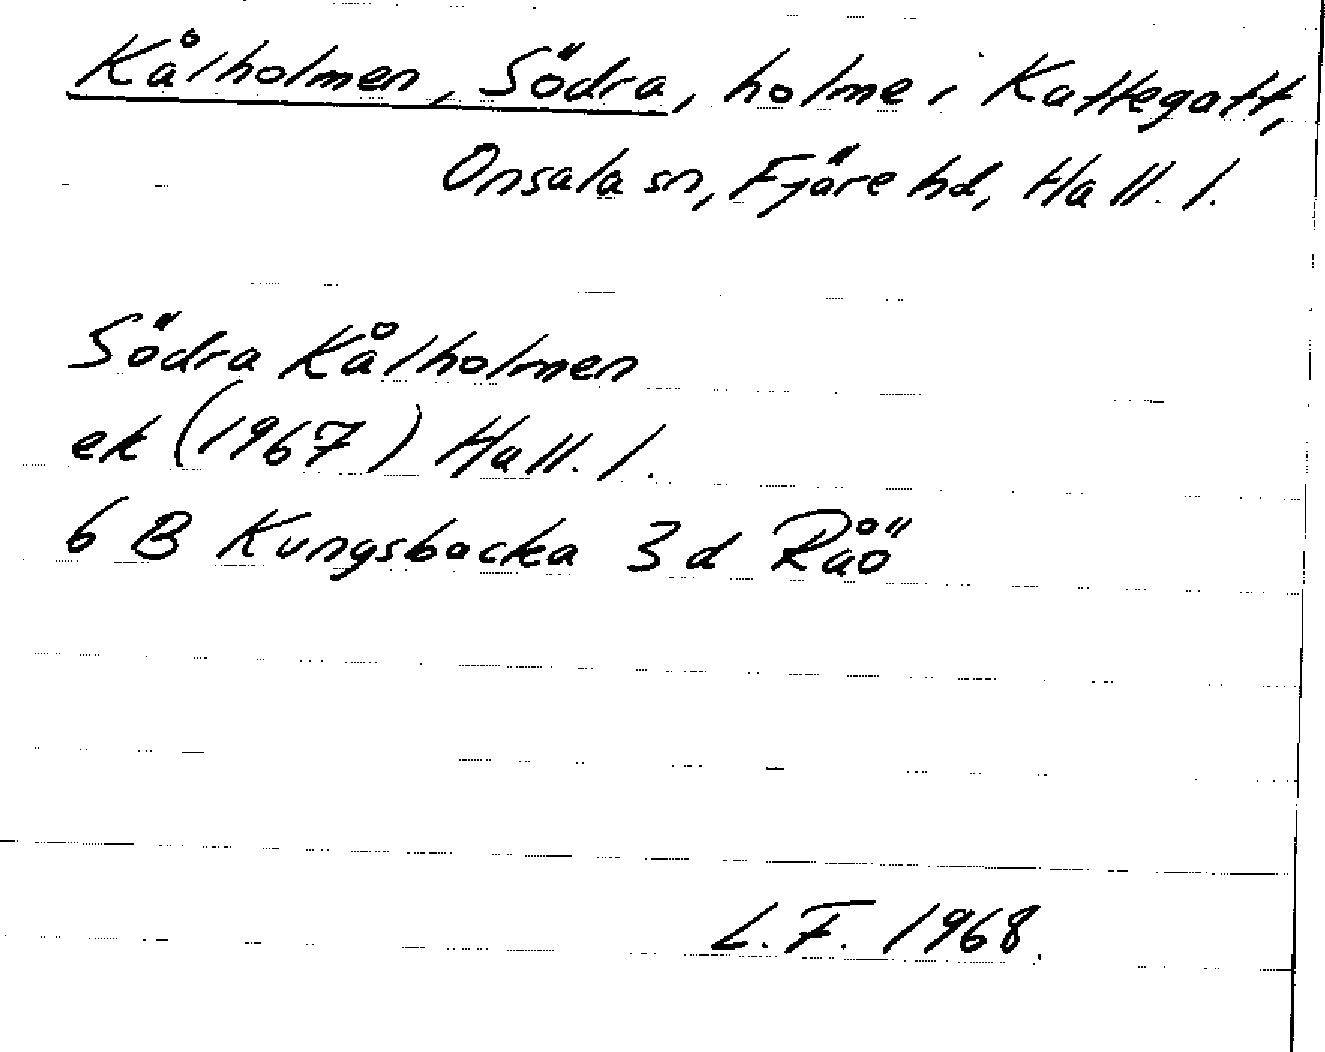 Kålholmen, Södra, holme i Kattegatt,
Onsala sn, Fjäre hd, Hall. l.
Södra Kålholmen
ek (1967) Hall. l.
6 B Kungsbacka 3 d Råö
L.F. 1968.